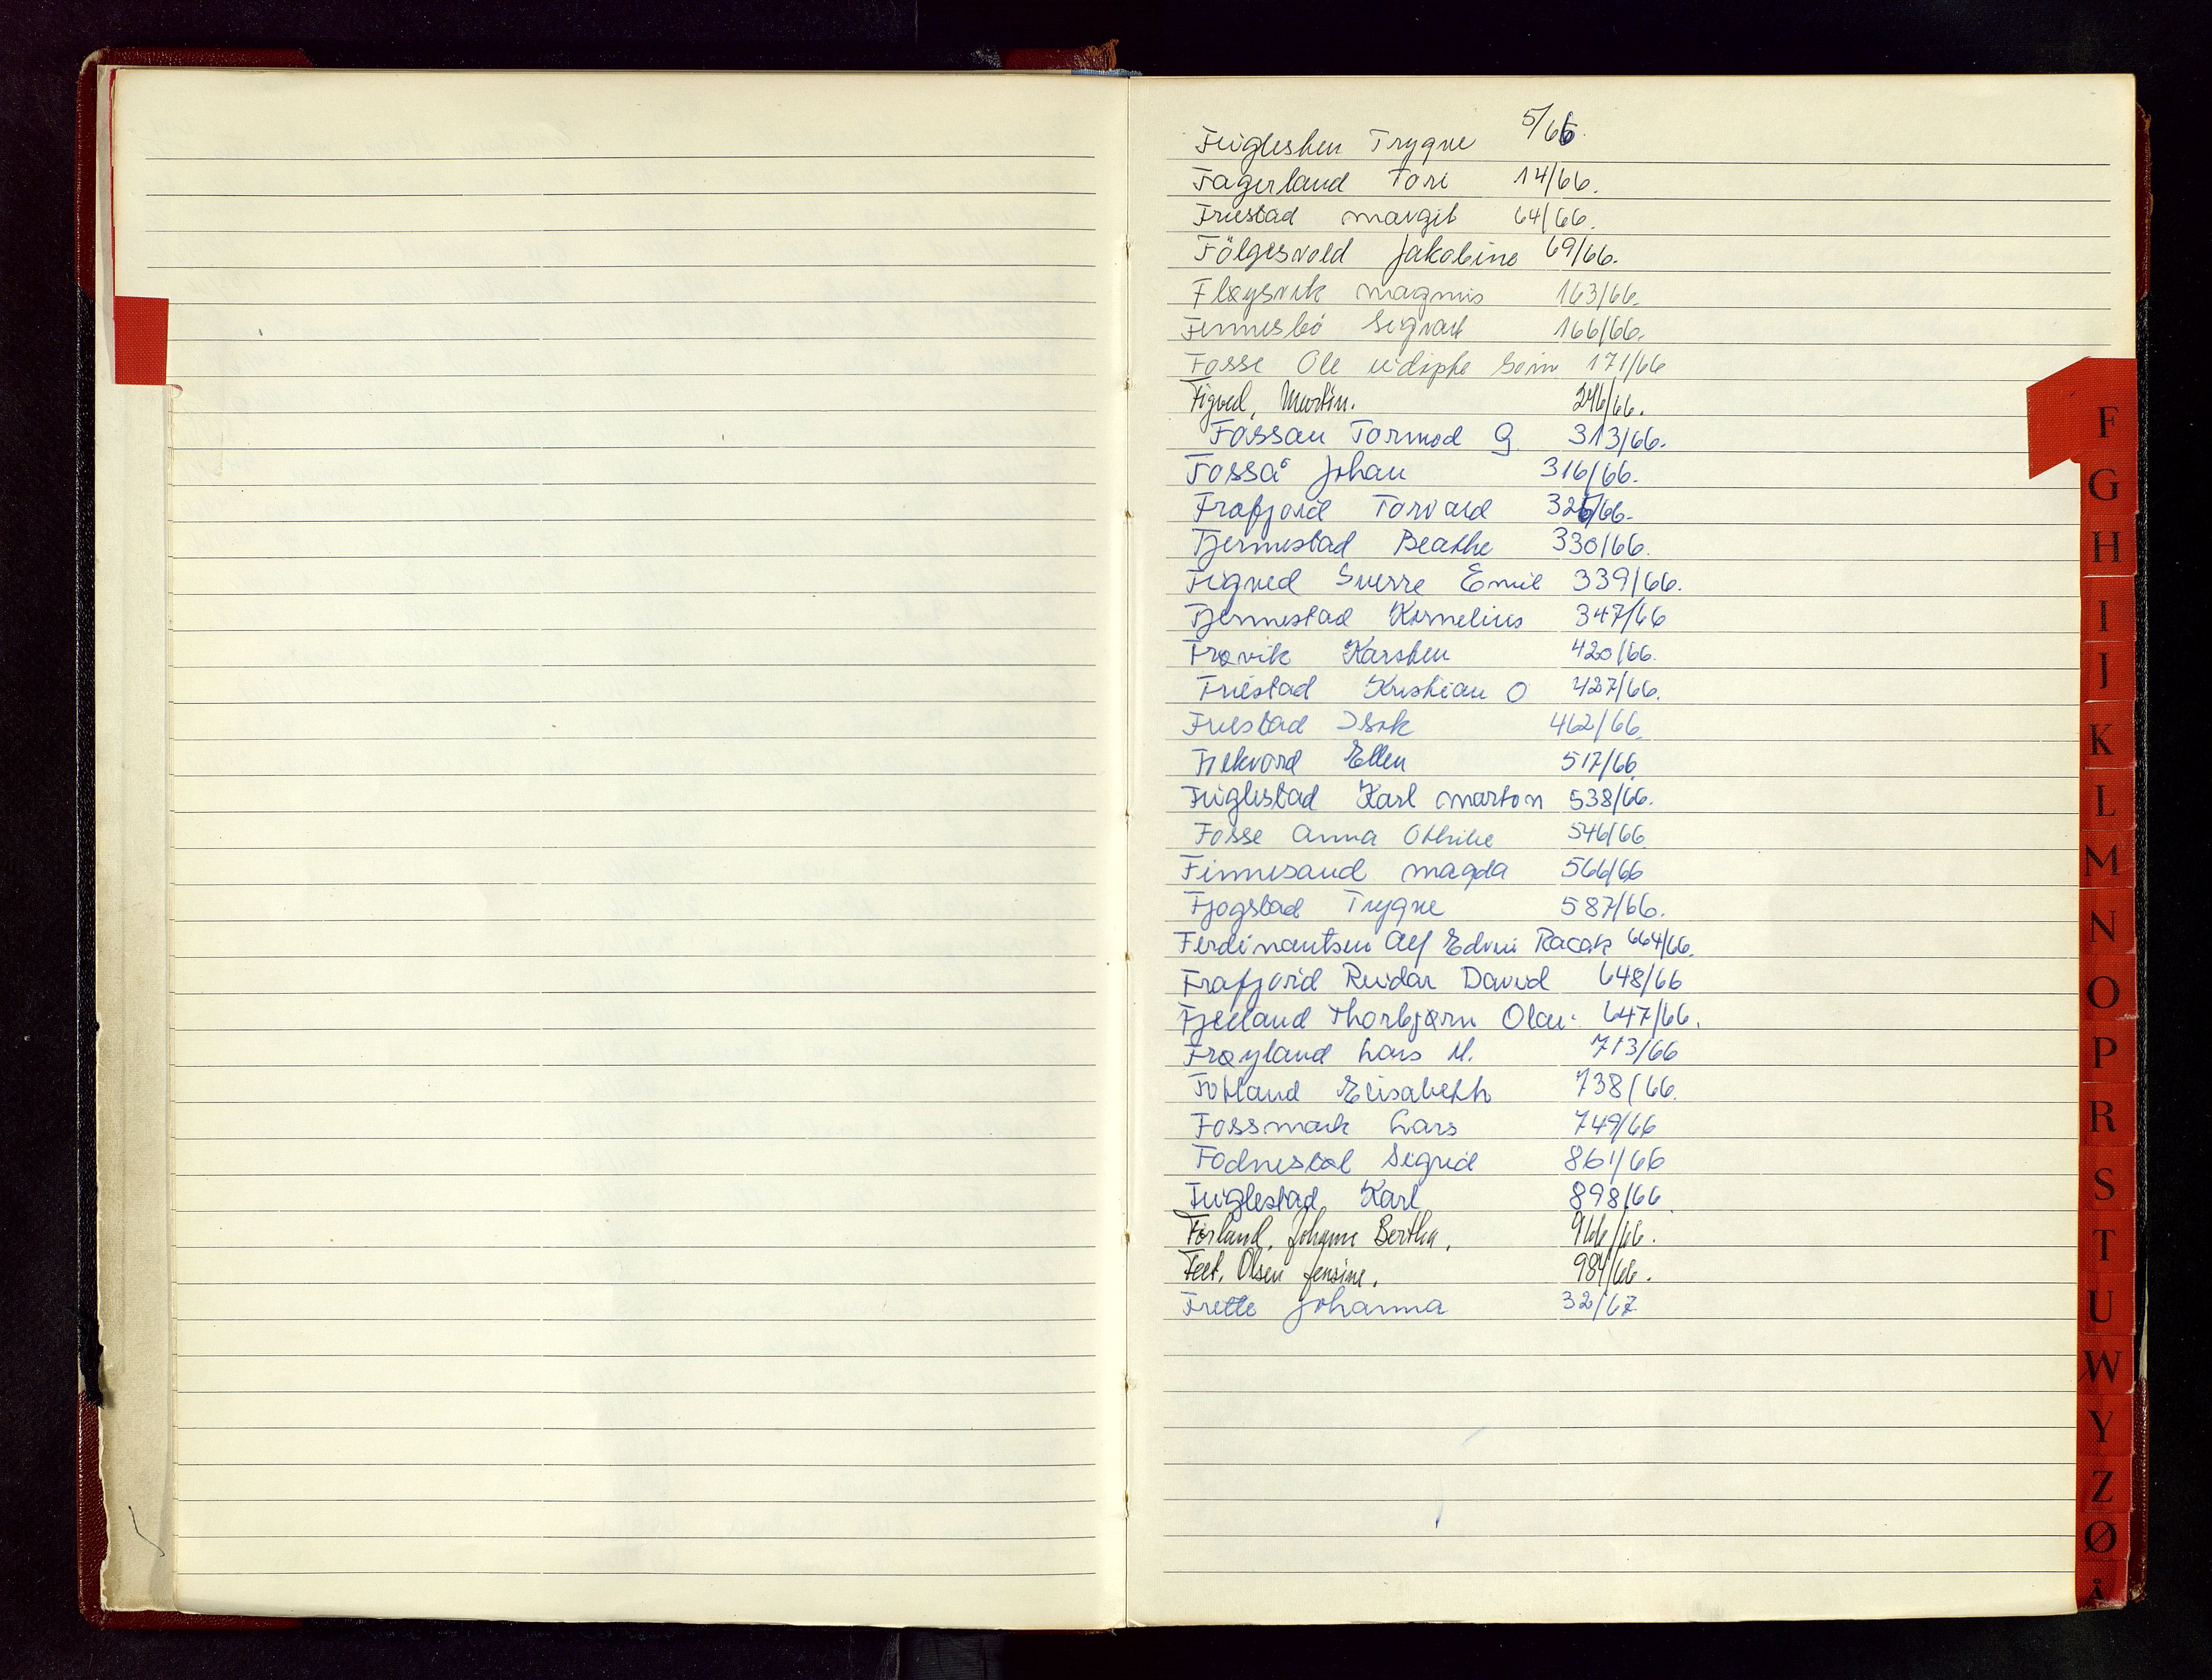 Fuglesten Trygve 5/66.
Fagerland Tore 14/66.
Friestad Margit 64/66.
Fölgesvold Jakobine 69/66.
Fløysvik Magnus 163/66.
Finnesbö Sigvart 166/66.
Fosse Ole 171/66
Figved, Martin. 246/66.
Fossan Tormod G. 313/66.
Fosså Johan 316/66.
Frafjord Torvald 326/66.
Fjermestad Beathe 330/66.
Figved Sverre Emil 339/66.
Fjermestad Kornelius 347/66
Frøvik Karsten 420/66.
Friestad Kristian O 427/66.
Friestad Isak 462/66.
Ellen 517/66.
Fuglestad Karl Marton 538/66.
Fosse Anna Othilie 546/66
Finnesand Magda 566/66
Fjogstad Trygve 587/66.
Ferdinantsen Alf Edvin 664/66.
Frafjord Reidar David 648/66
Fjelland Thorbjørn Olav. 647/66.
Frøyland Lars M. 713/66
Fotland Elisabeth 738/66.
Fossmark Lars 749/66
Fodnestøl Sigrid 861/66
Fuglestad Karl 898/66.
Førland, Johanne Bertha. 966/66.
Feet, Olsen Jensine. 984/66.
Frette Johanna 32/67
F
G
H
I
J
K
L
M
N
O
P
R
S
T
U
W
Y
Z
Ø
Å